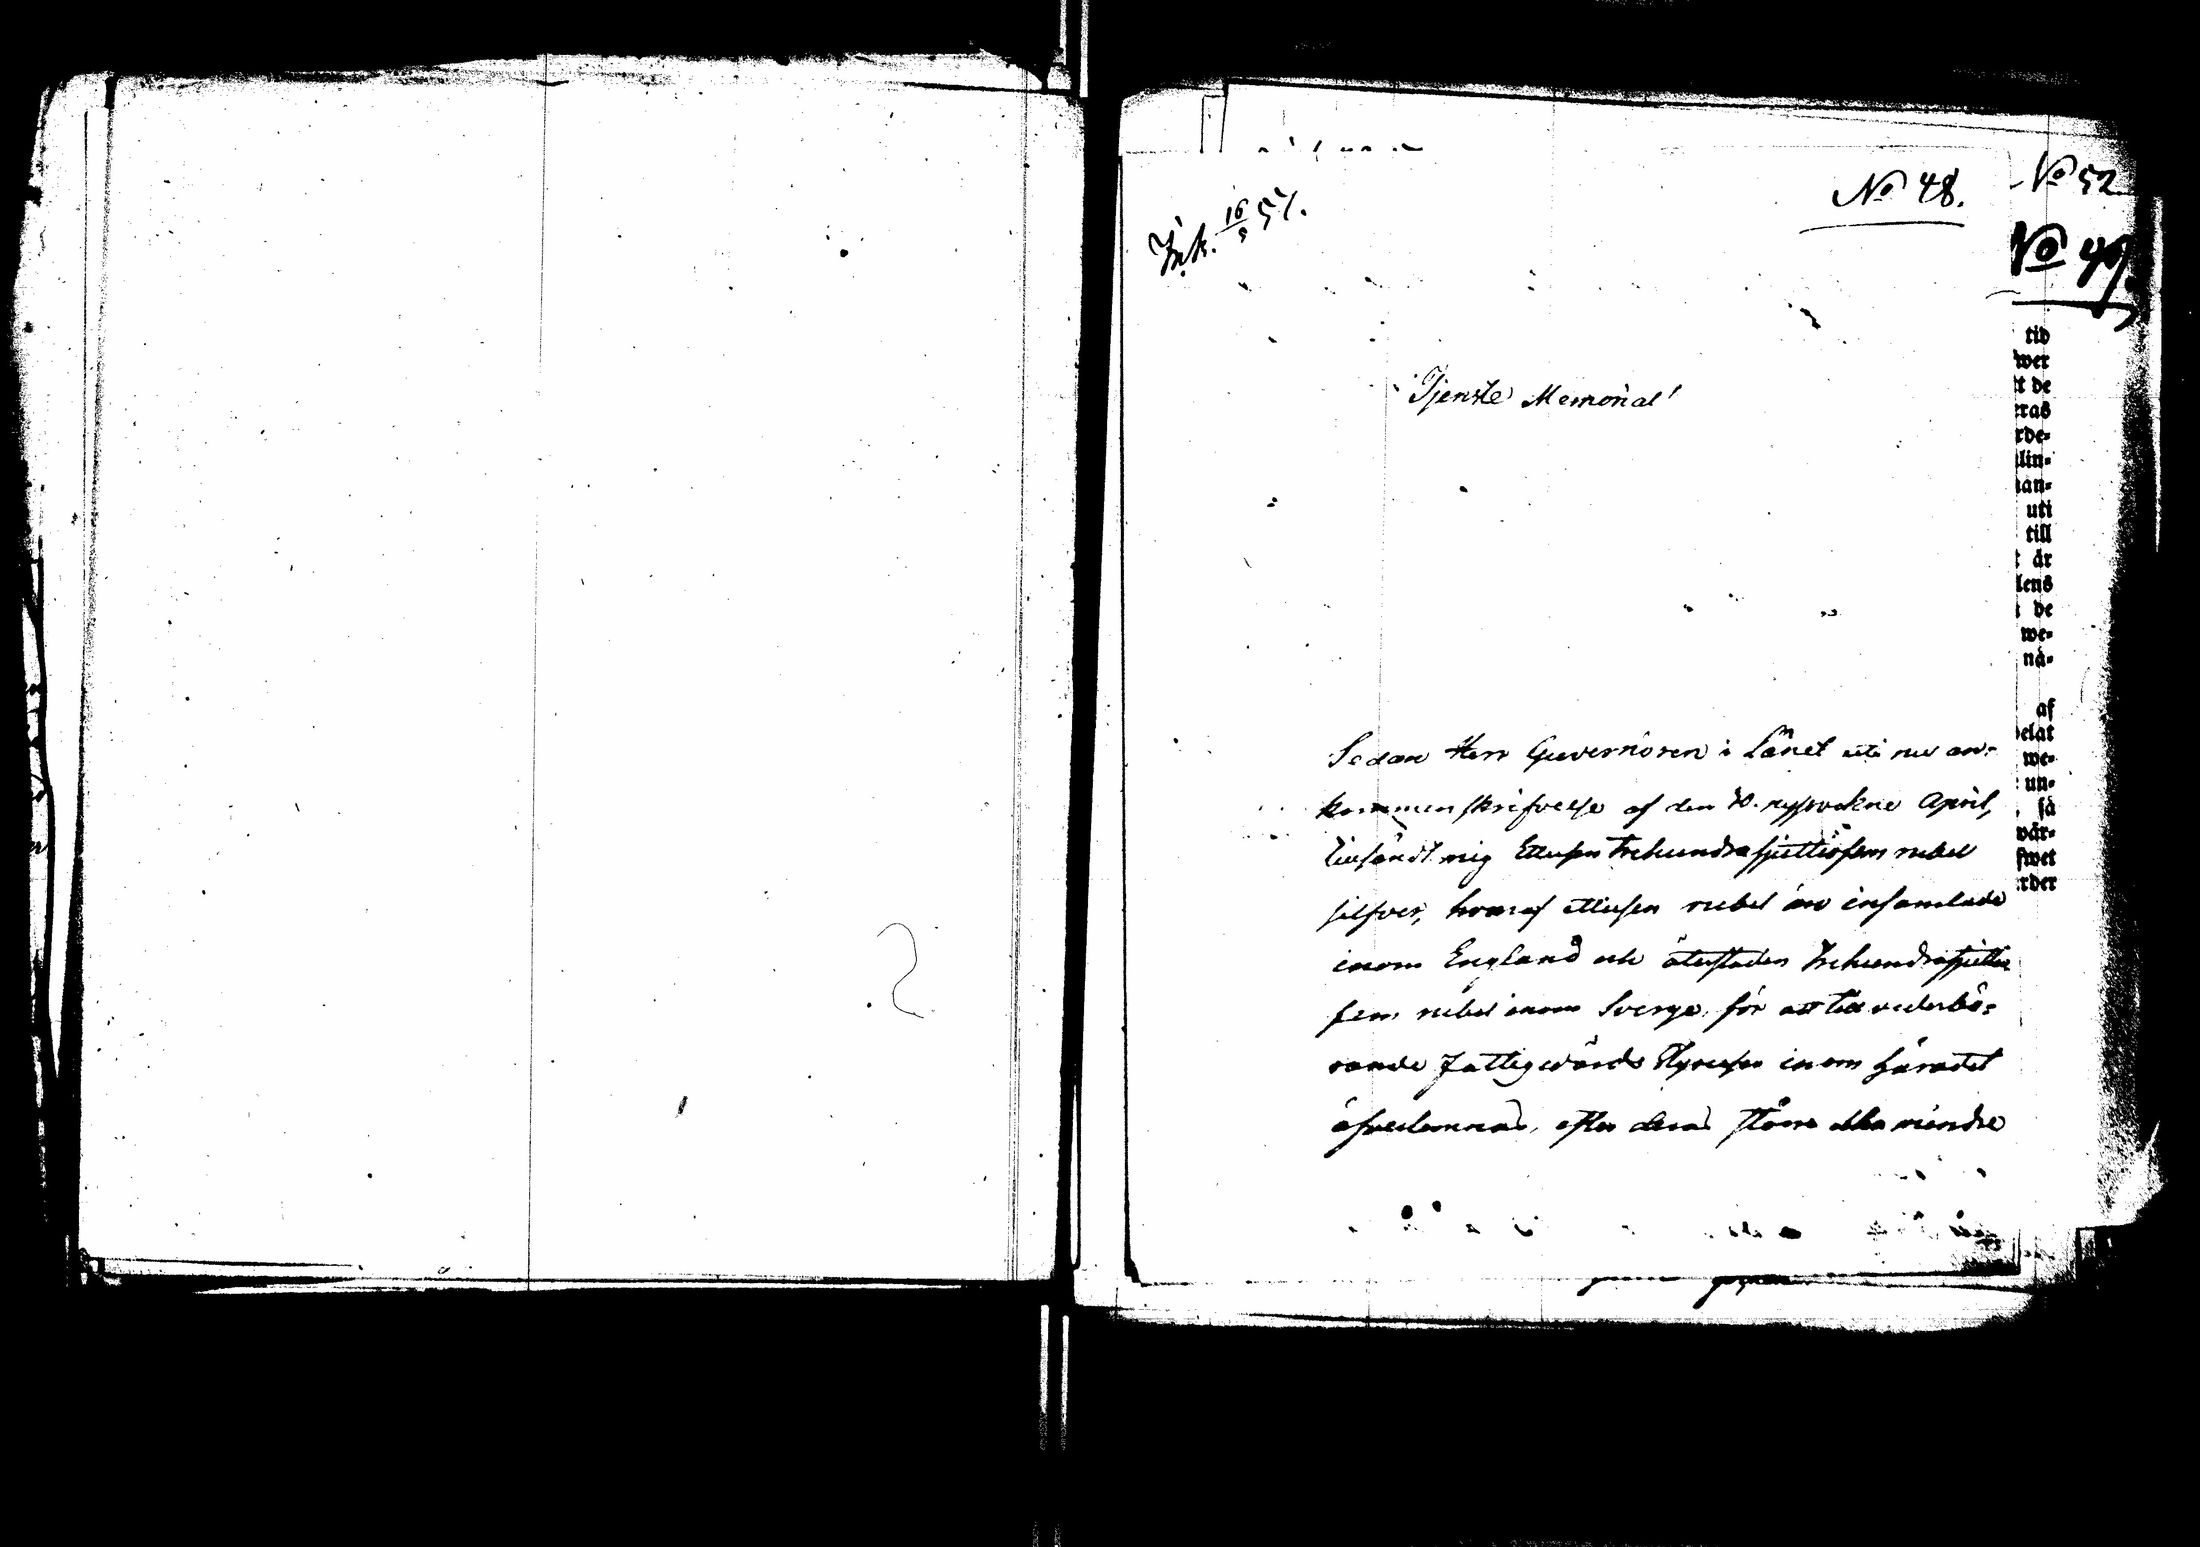 Ink. 16/5 57.
No 48.
No 52
No 49.
Tjenste Memorial
Sedan Herr Guvernören i Länet uti nu an-
kommen skrifvelse af den 30. nyssvekne April,
tillsändt mig Ettusen Trehundrasjuttiofem rubel
silfver, hvaraf ettusen rubel äro insamlade
inom England och återstaden Trehundrasjuttio
fem rubel inom Sverge, för att till vederbö-
rande Fattigvårds Styrelser inom häradet
öfverlemnas, efter deras större eller mindre
tid
wer
t de
eras
rde-
lin-
han-
uti
till
t är
lens
de
we-
nä-
af
elat
we-
un-
så
wär-
fwet
rder